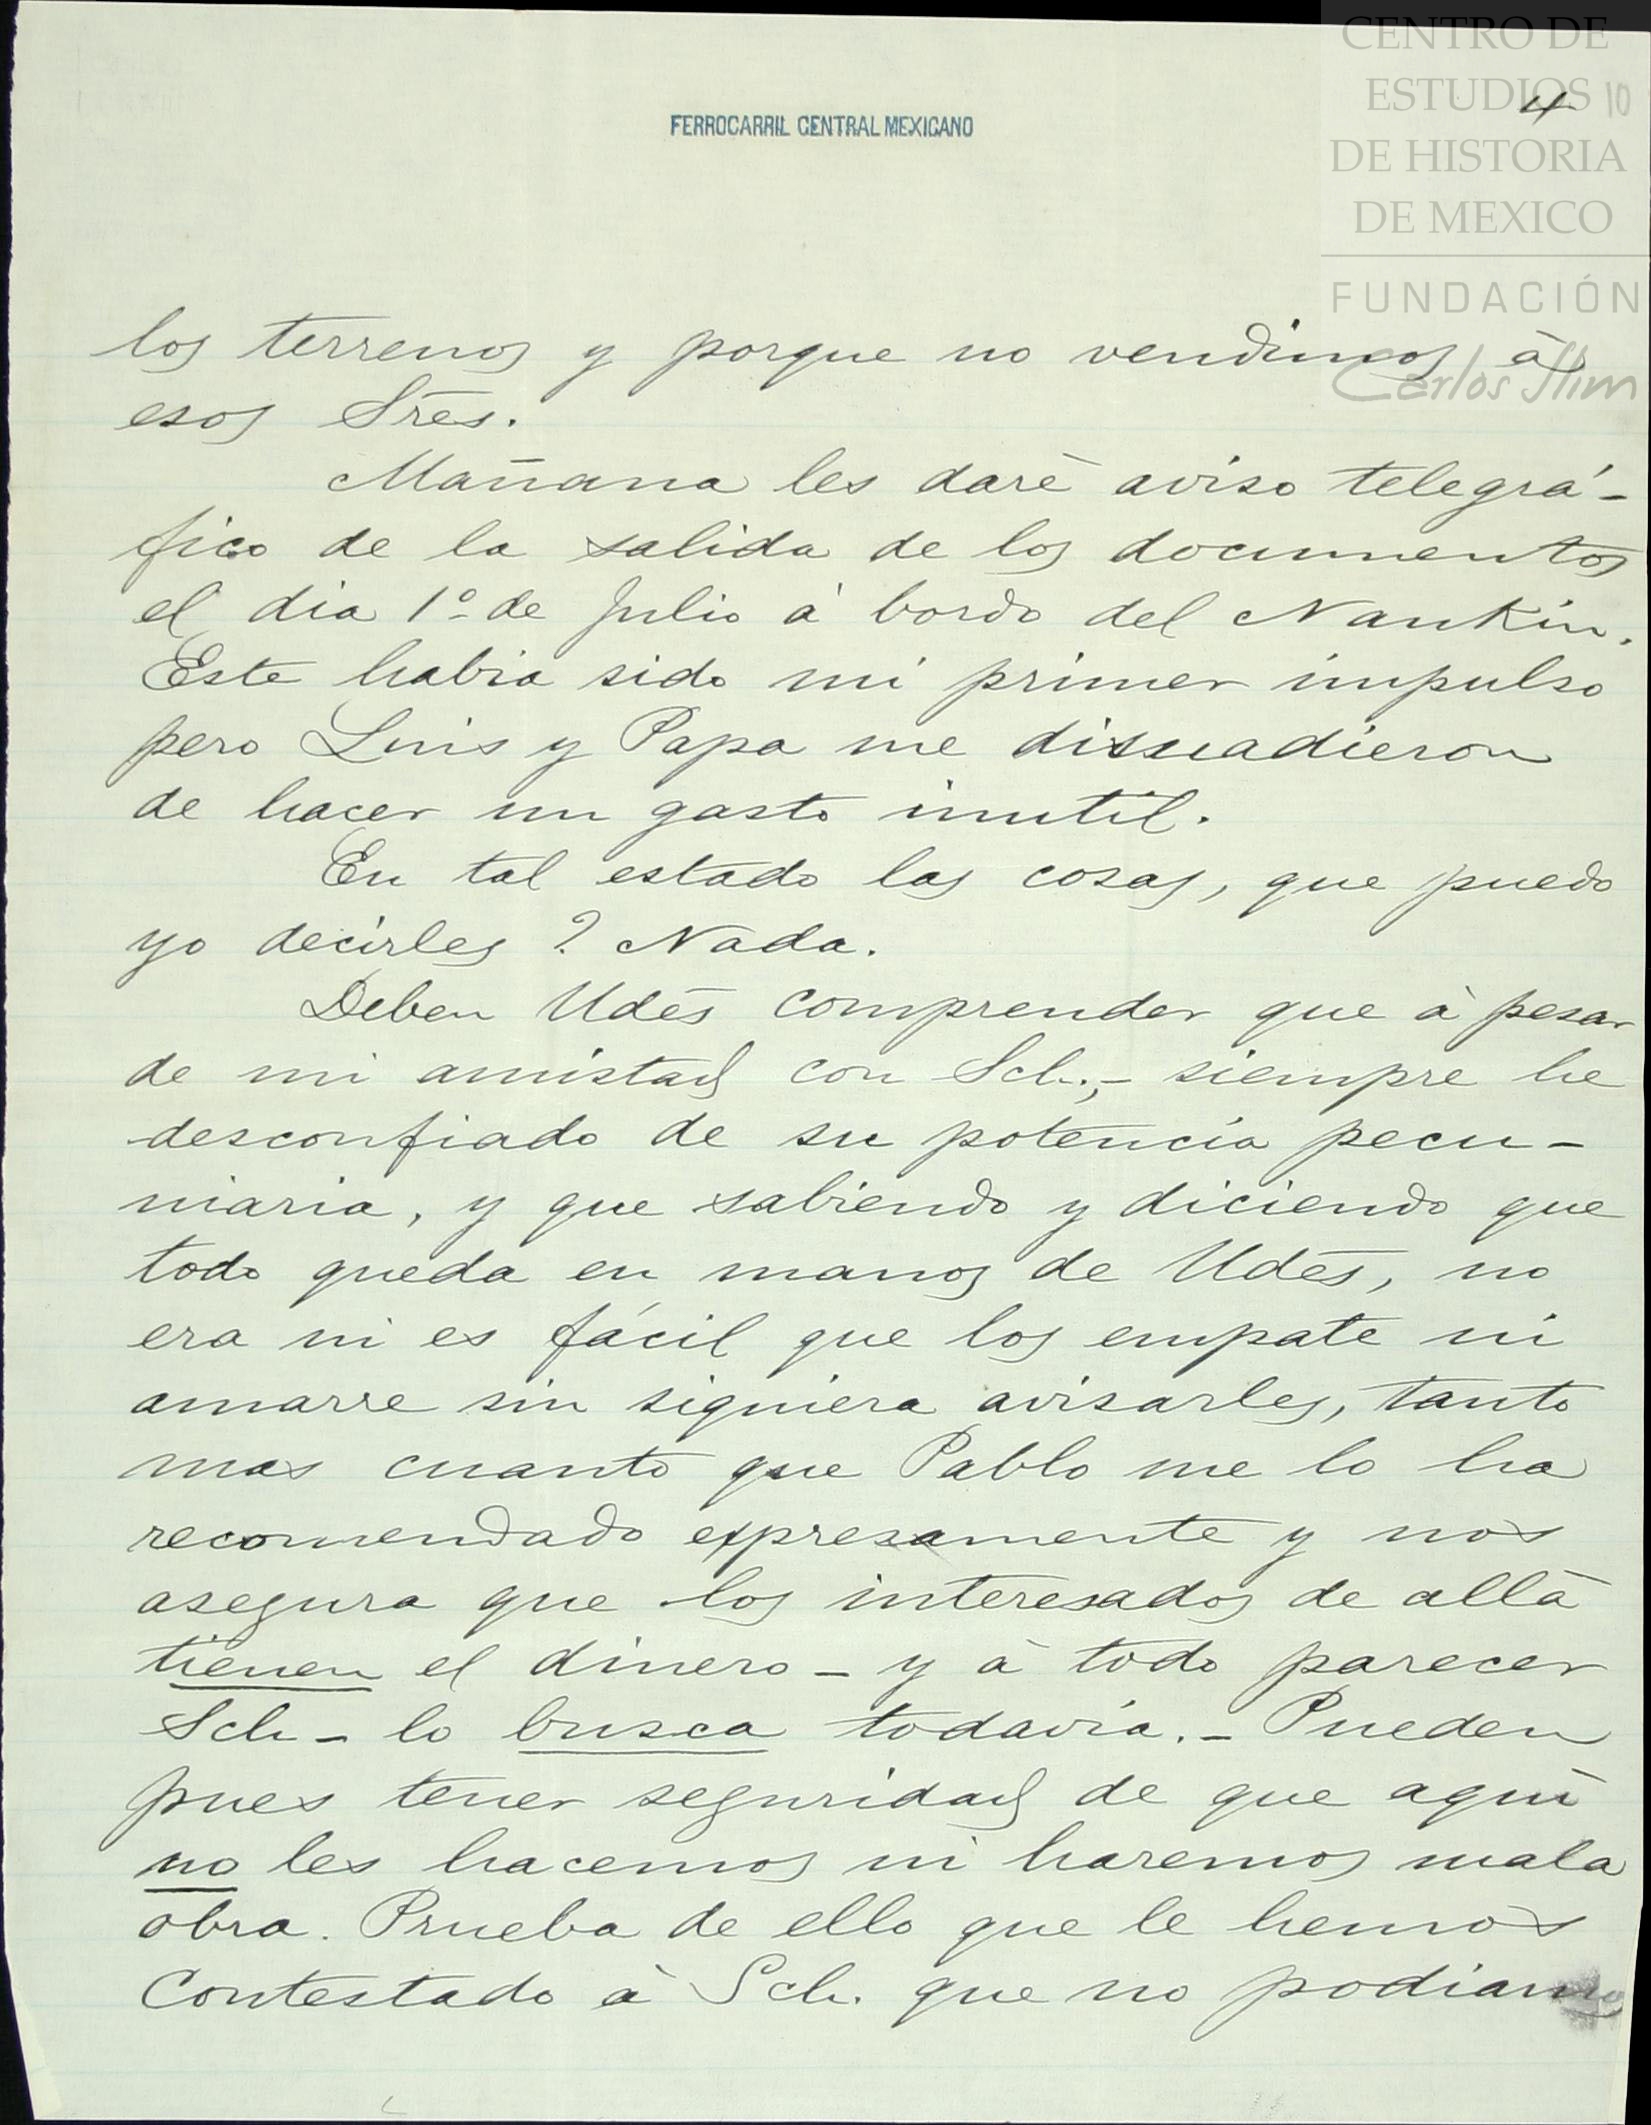 CENTRO DE
ESTUDIOS
DE HISTORIA
DE MEXICO
FUNDACIÓN
Carlos Slim
4
10
FERROCARRIL CENTRAL MEXICANO
los terrenos y porque no vendimos à
esos Sres.
Mañana les daré aviso telegrá-
fico de la salida de los documentos
el dia 1º de Julio á bordo del Nankin.
Este habia sido mi primer impulso
pero Luis y Papa me disuadieron
de hacer un gasto inutil.
En tal estado las cosas, que puedo
yo decirles? Nada.
Deben Udes comprender que à pesar
de mi amistad con Sch., - siempre he
desconfiado de su potencia pecu-
niaria, y que sabiendo y diciendo que
todo queda en manos de Udes, no
era ni es fácil que los empate ni
amarre sin siquiera avisarles, tanto
mas cuanto que Pablo me lo ha
recomendado expresamente y nos
asegura que los interesados de allà
tienen el dinero - y à todo parecer
Sch - lo busca todavia. - Pueden
pues tener seguridad de que aquì
no les hacemos ni haremos mala
obra. Prueba de ello que le hemos
Contestado à Sch. que no podiamos